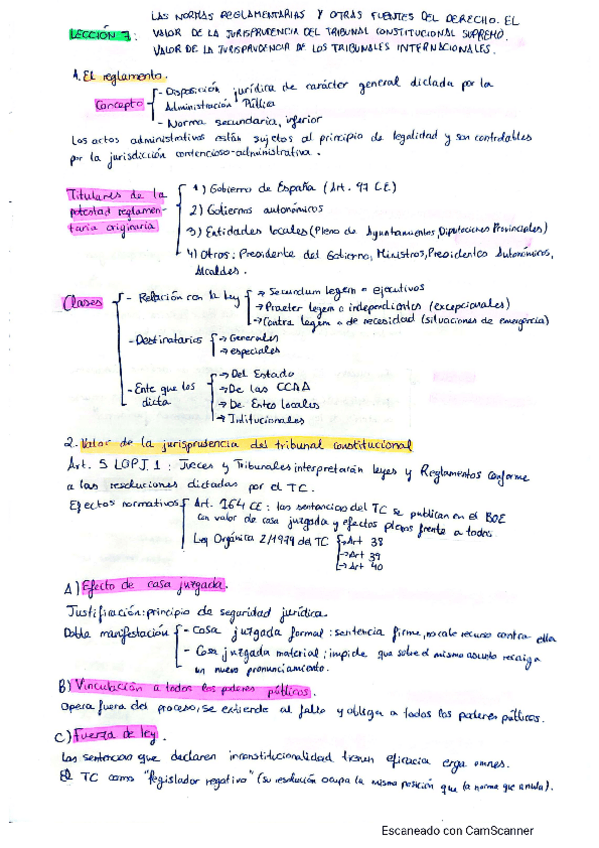 LECCIÓN 7: LAS NORMAS REGLAMENTARIAS Y OTRAS FUENTES DEL DERECHO. EL
VALOR DE LA JURISPRUDENCIA DEL TRIBUNAL CONSTITUCIONAL SUPREMO.
VALOR DE LA JURISPRUDENCIA DE LOS TRIBUNALES INTERNACIONALES.
1. El reglamento.
Concepto
- Disposición jurídica de carácter general dictada por la
Administración Pública
- Norma secundaria, inferior
Los actos administrativos están sujetos al principio de legalidad y son controlables
por la jurisdicción contencioso-administrativa.
Titulares de la
potestad reglamen-
taria originaria
1) Gobierno de España (Art. 97 CE)
2) Gobiernos autonómicos
3) Entidades locales (Pleno de Ayuntamientos, Diputaciones Provinciales)
4) Otros: Presidente del Gobierno, Ministros, Presidentes Autonómicos,
Alcaldes.
Clases
- Relación con la Ley
→ Secundum legem o ejecutivos
→ Praeter legem o independientes (excepcionales)
→ Contra legem o de necesidad (situaciones de emergencia)
- Destinatarios
→ Generales
→ especiales
- Ente que los
dicta
→ Del Estado
→ De las CCAA
→ De Entes locales
→ Institucionales
2. Valor de la jurisprudencia del tribunal constitucional
Art. 5 LOPJ.1: Jueces y Tribunales interpretarán leyes y Reglamentos conforme
a las resoluciones dictadas por el TC.
Efectos normativos
Art. 164 CE: las sentencias del TC se publican en el BOE
con valor de cosa juzgada y efectos plenos frente a todos.
Ley Orgánica 2/1979 del TC
→ Art 38
→ Art 39
→ Art 40
A) Efecto de cosa juzgada.
Justificación: principio de seguridad jurídica.
Doble manifestación
- Cosa juzgada formal: sentencia firme, no cabe recurso contra ella
- Cosa juzgada material; impide que sobre el mismo asunto recaiga
un nuevo pronunciamiento.
B) Vinculación a todos los poderes públicos.
Opera fuera del proceso, se extiende al fallo y obliga a todos los poderes públicos.
C) Fuerza de ley.
Las sentencias que declaren inconstitucionalidad tienen eficacia erga omnes.
El TC como "legislador negativo" (su resolución ocupa la misma posición que la norma que anula).
Escaneado con CamScanner